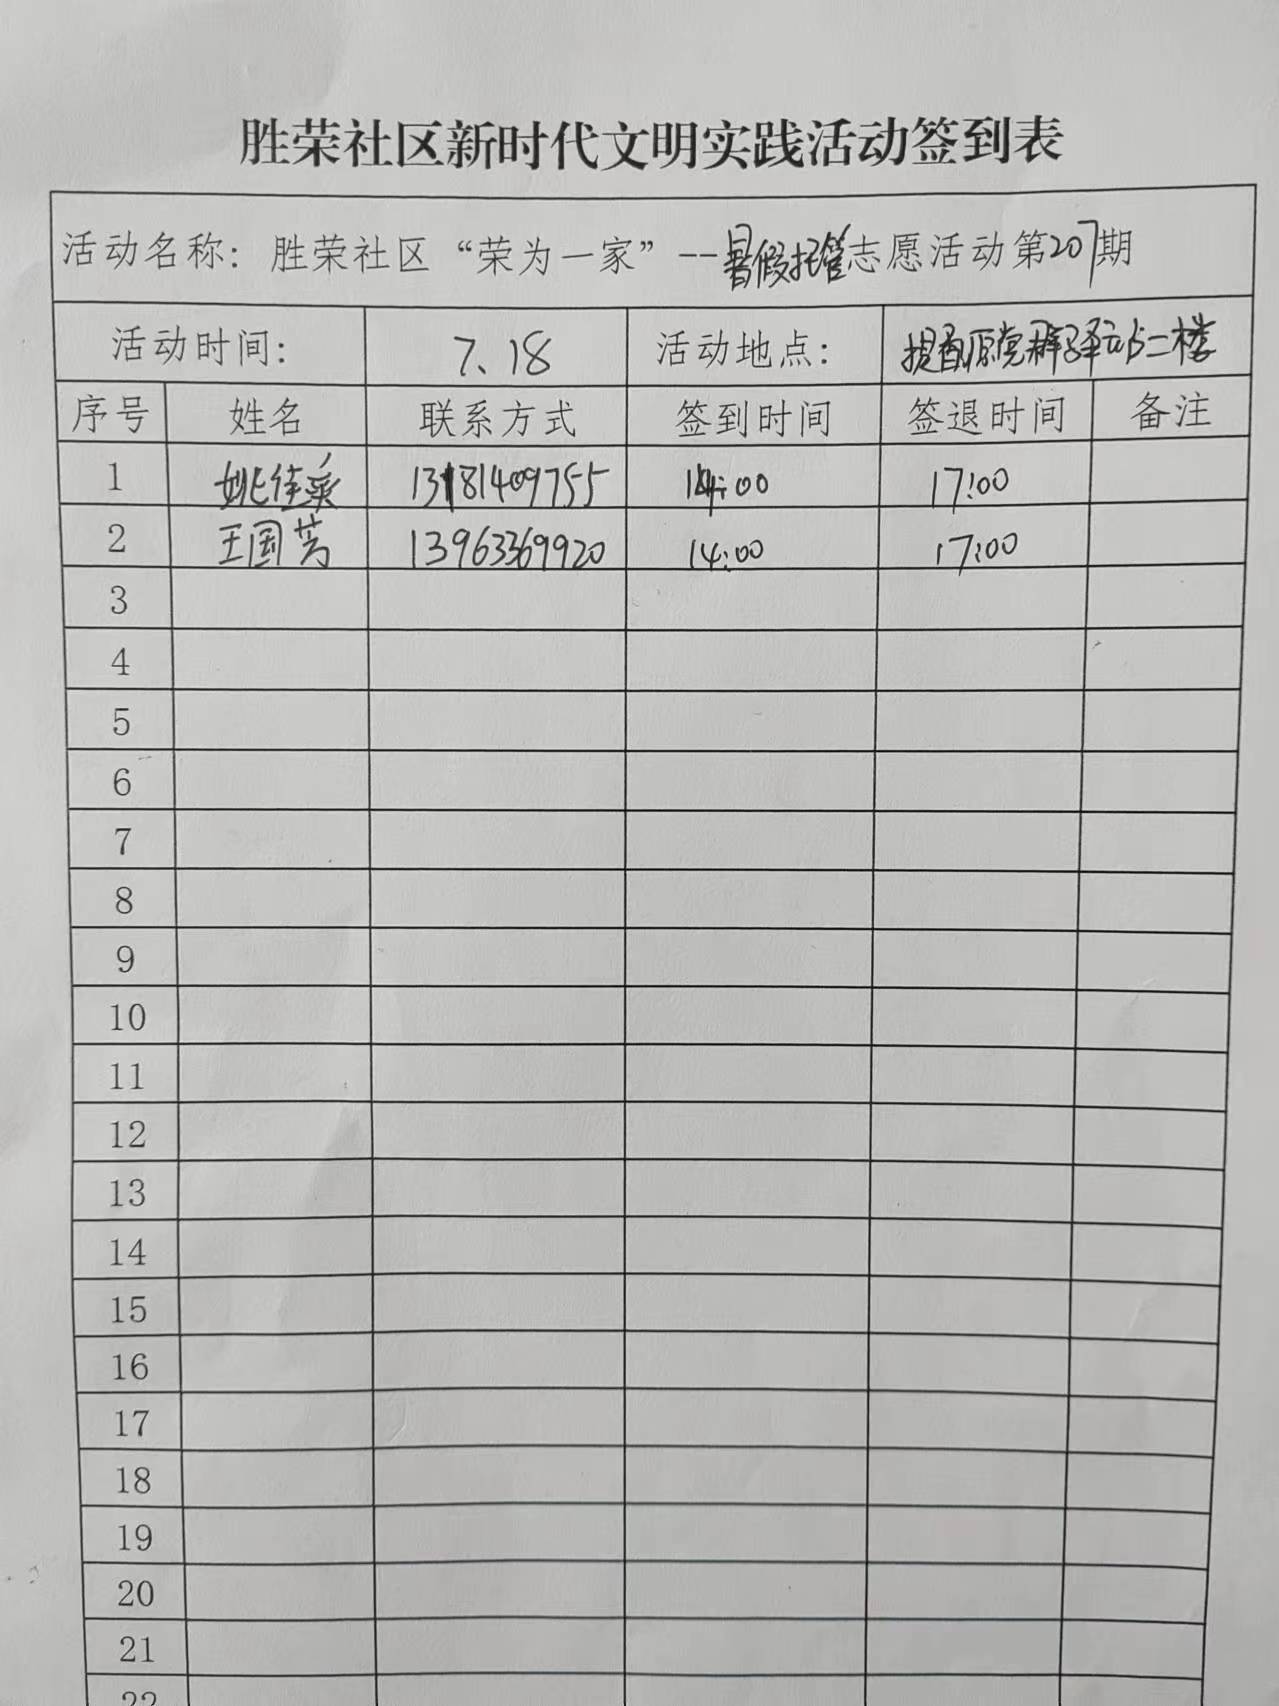 胜荣社区新时代文明实践活动签到表
活动名称：胜荣社区“荣为一家”--暑假托管志愿活动第207期
活动时间： 7.18 活动地点： 党群驿站二楼
序号 姓名 联系方式 签到时间 签退时间 备注
1 姚佳采 13181409755 14:00 17:00
2 王国芳 13963369920 14:00 17:00
3
4
5
6
7
8
9
10
11
12
13
14
15
16
17
18
19
20
21
22